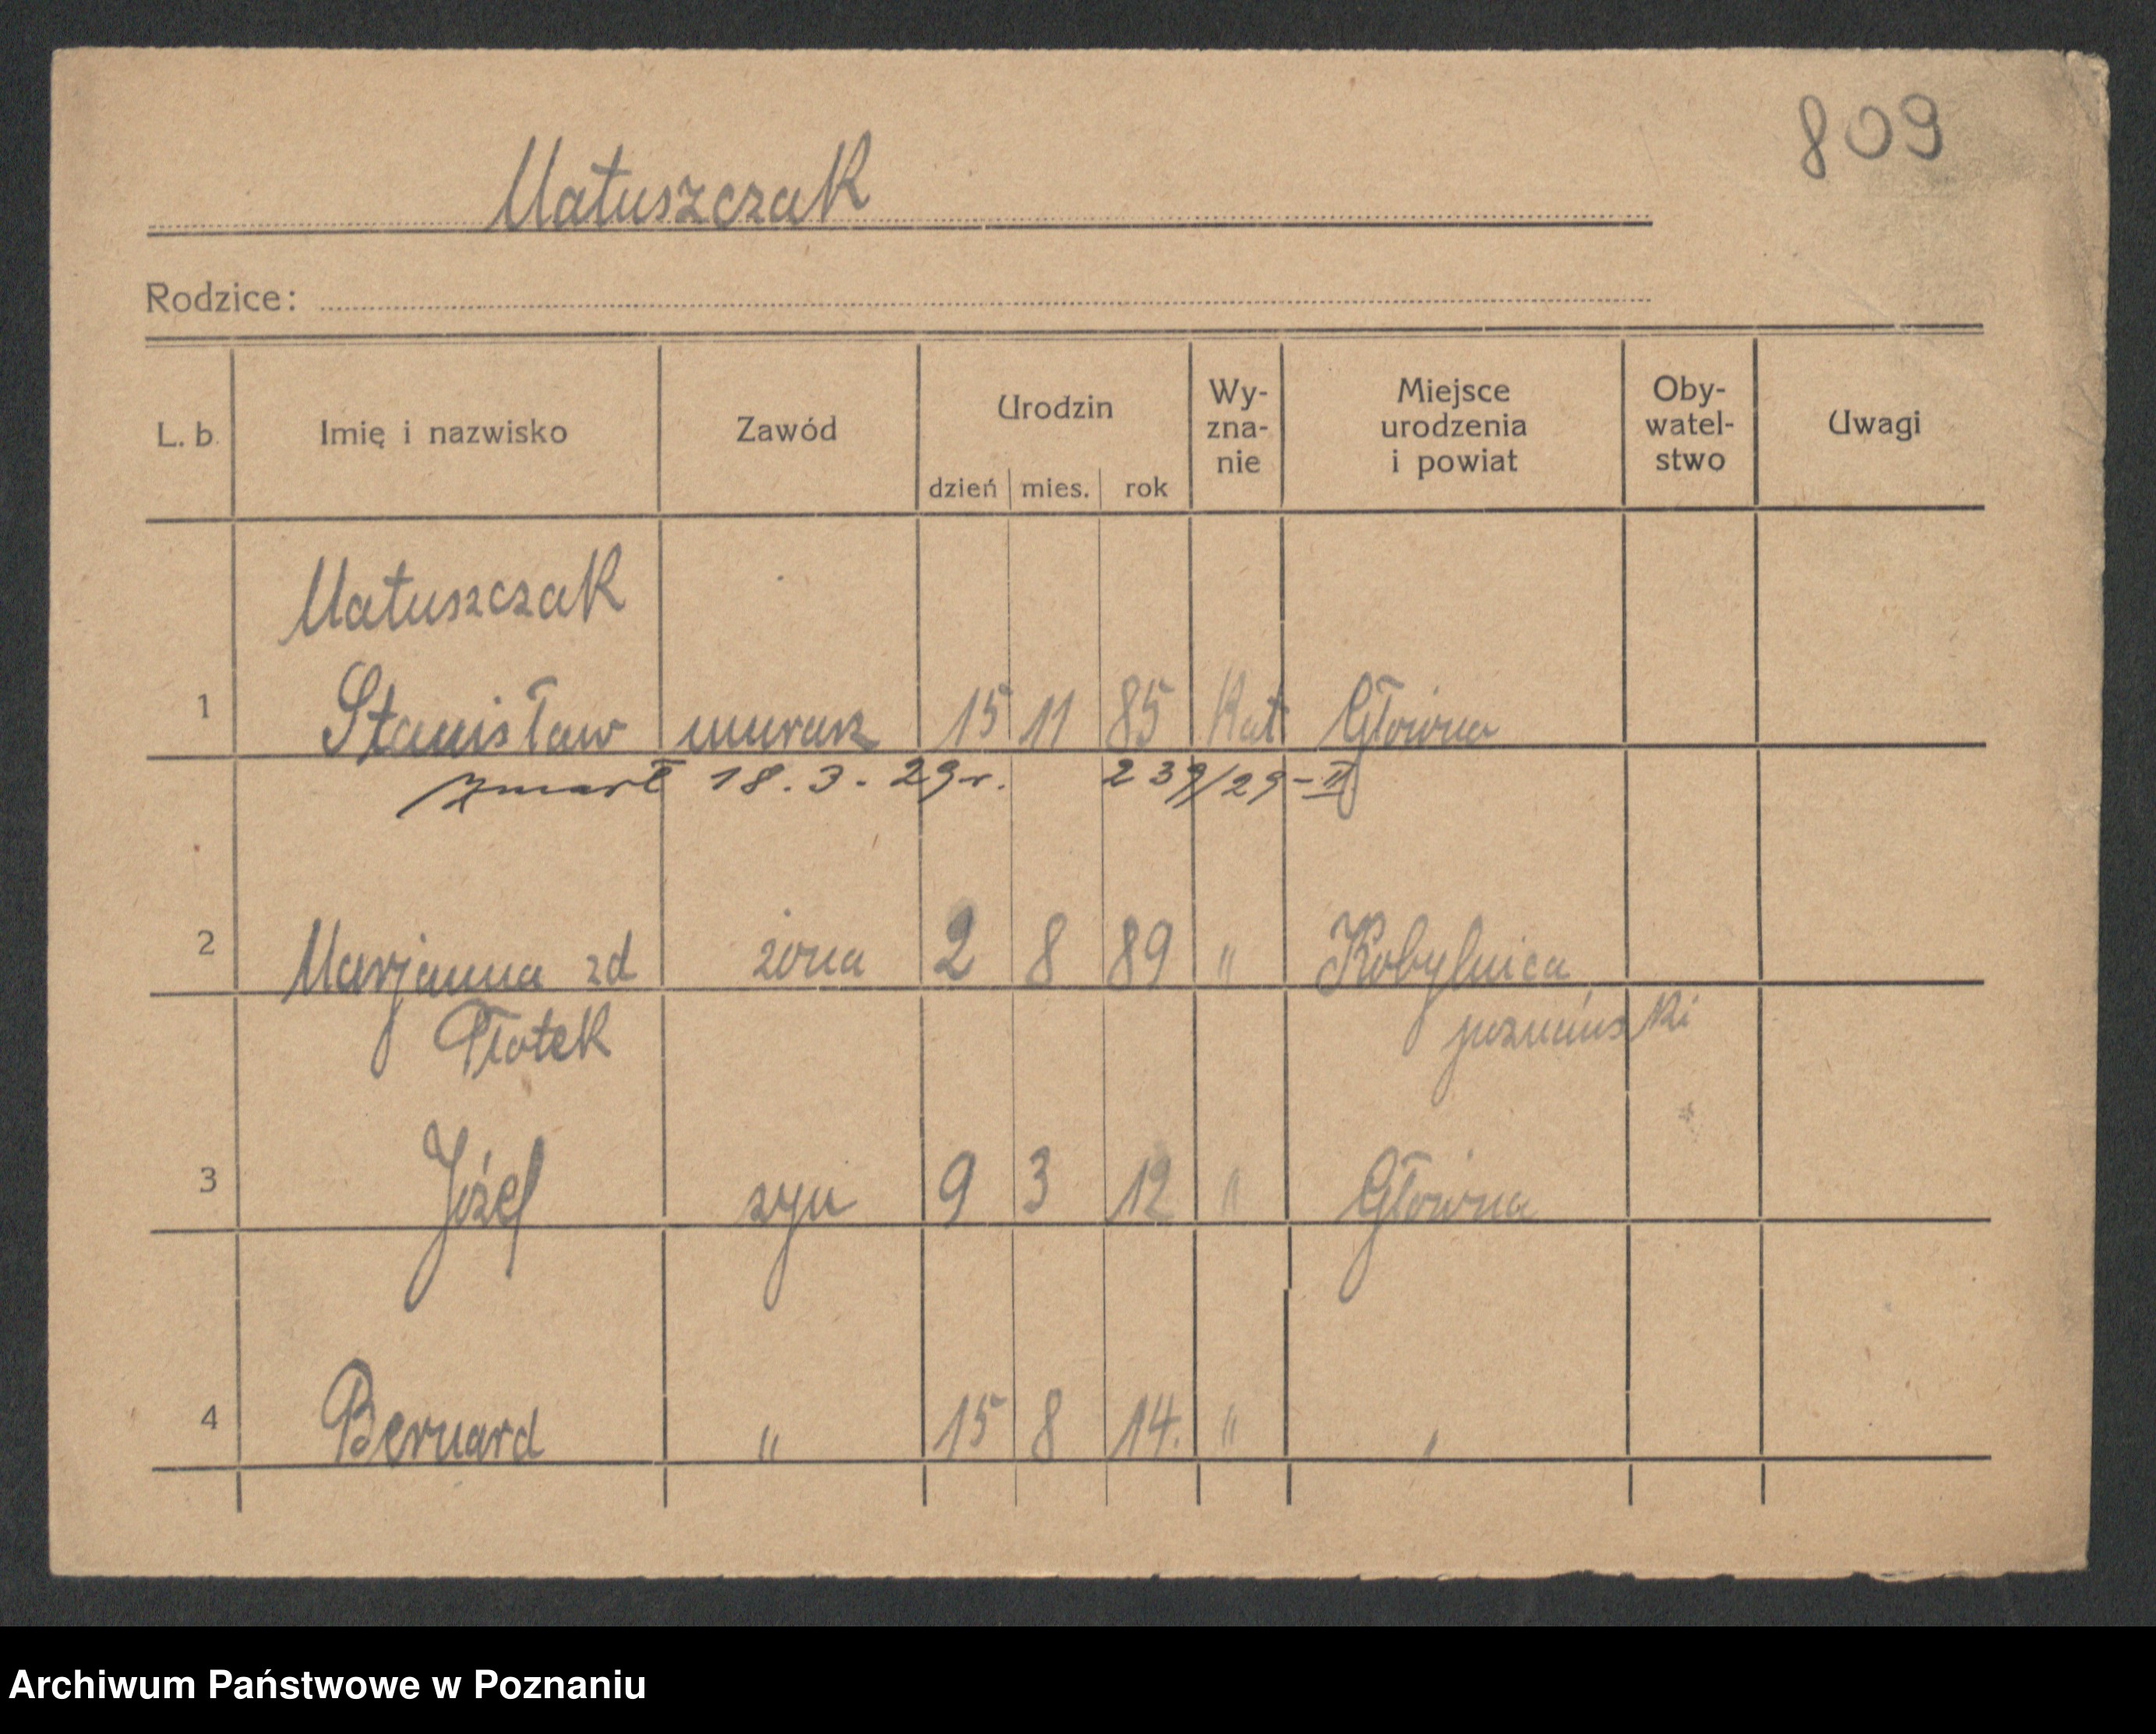 809
Matuszczak
Rodzice:
L. b. Imię i nazwisko Zawód Urodzin dzień mies. rok Wy-zna-nie Miejsce urodzenia i powiat Oby-watel-stwo Uwagi
Matuszczak
1 Stanisław murarz 15 11 85 Kat Główna
zmarł 18.3.-29r. 239/29-II
2 Marjanna zd żona 2 8 89 " Kobylnica
Płotek poznański
3 Józef syn 9 3 12 " Główna
4 Bernard " 15 8 14. " "
Archiwum Państwowe w Poznaniu